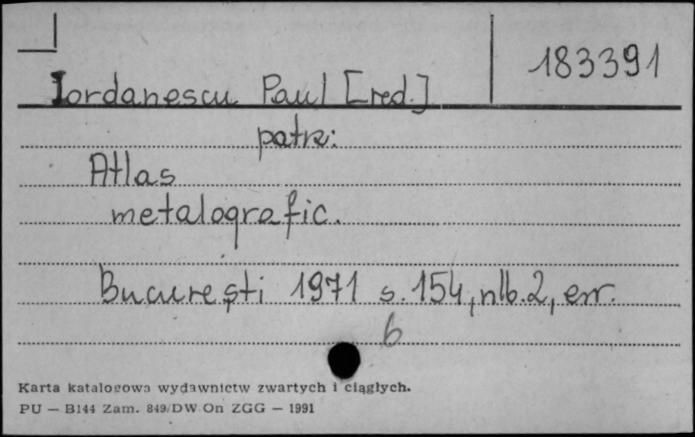 183391
Iordanescu Paul [red.]
patrz:
Atlas
metalografic.
Bucureşti 1971 s. 154, nlb. 2, err.
b
Karta katalogowa wydawnictw zwartych i ciągłych.
PU — B144 Zam. 849/DW On ZGG — 1991